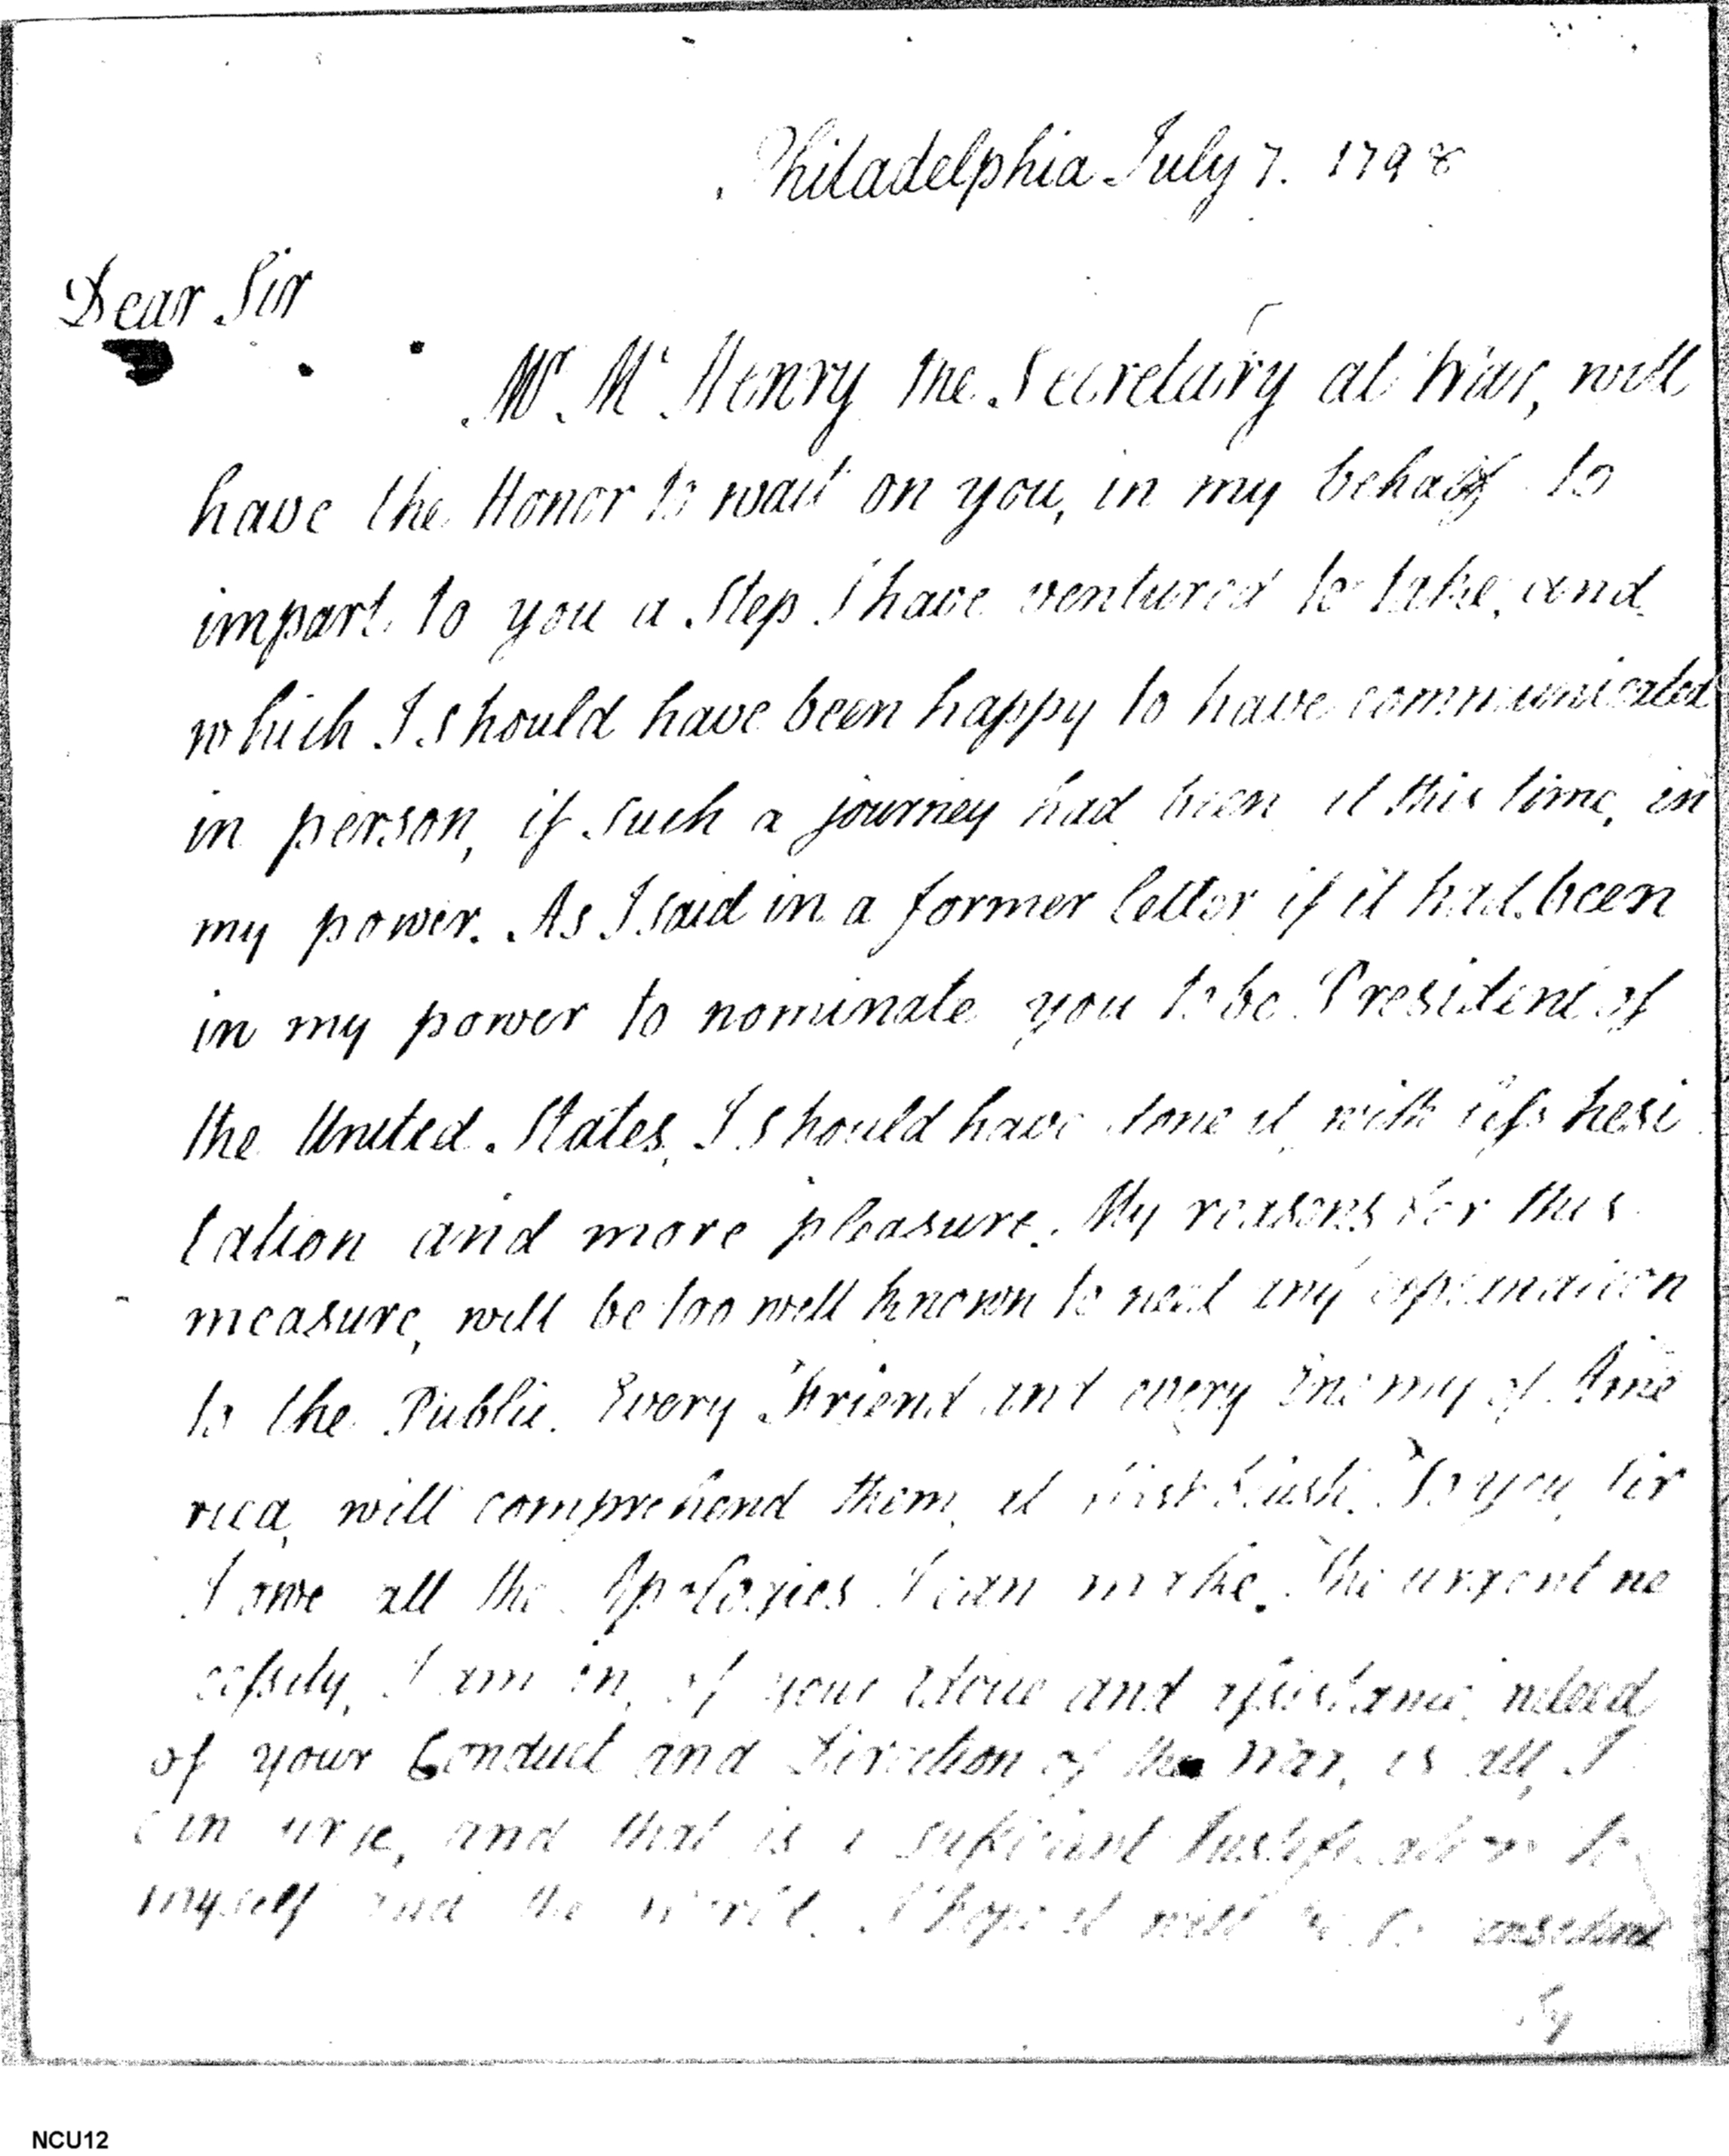 Philadelphia July 7. 1798
Dear Sir
Mr. Mc Henry the Secretary at War, will
have the Honor to wait on you, in my behalf to
impart to you a Step I have ventured to take, and
which I should have been happy to have communicated
in person, if such a journey had been at this time, in
my power. As I said in a former letter if it had been
in my power to nominate you to be President of
the United States, I should have done it with less hesi
tation and more pleasure. My reasons for this
measure, will be too well known to need any explanation
to the Public. Every Friend and every Enemy of Ame
rica, will comprehend them, at first blush. To you, Sir
I owe all the Apologies I can make. The urgent ne
cessity, I am in, of your Advice and assistance, indeed
of your Conduct and Direction of the War, is all, I
can urge, and that is a sufficient Justification to
myself and the World. I hope it will be so considered
by
NCU12